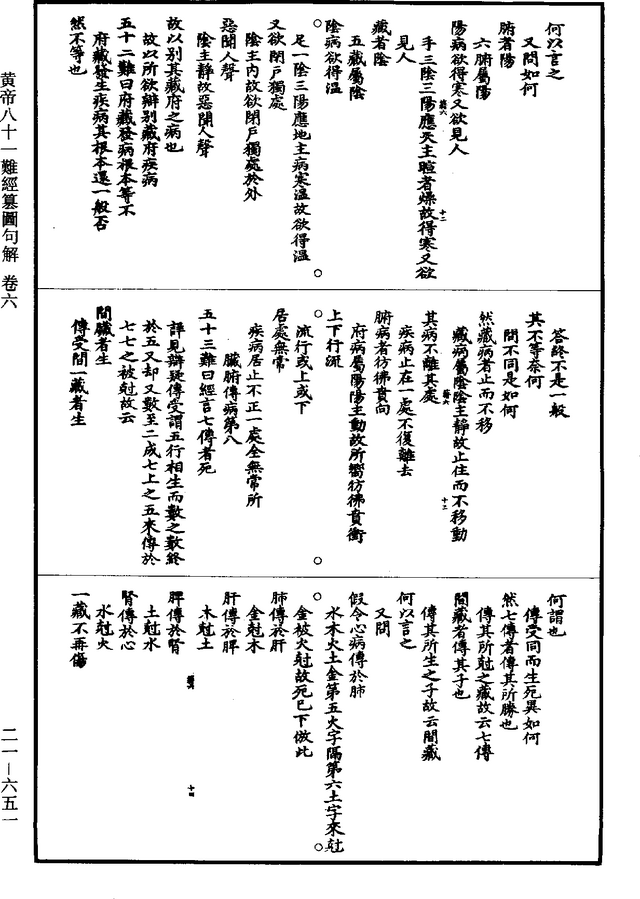 黄帝八十一難經纂圖句解 卷六
二一—六五一
何以言之
又問如何
腑者陽
六腑屬陽
陽病欲得寒又欲見人
手三陰三陽應天主暄者燥故得寒又欲
見人
藏者陰
五藏屬陰
陰病欲得温
足一陰三陽應地主病寒温故欲得温
又欲閉戶獨處
陰主內故欲閉戶獨處於外
惡聞人聲
陰主靜故惡聞人聲
故以别其藏府之病也
故以所欲辯别藏府疾病
五十二難曰府藏發病根本等不
府藏發生疾病其根本還一般否
然不等也
答終不是一般
其不等奈何
問不同是如何
然藏病者止而不移
藏病屬陰陰主靜故止住而不移動
其病不離其處
疾病止在一處不復離去
腑病者彷彿賁向
府病屬陽陽主動故所嚮彷彿賁衝
上下行流
流行或上或下
居處無常
疾病居止不正一處全無常所
臓腑傳病第八
五十三難曰經言七傳者死
詳見辯疑傳受謂五行相生而數之數終
於五又却又數至二成七上之五來傳於
七七之被尅故云
間臓者生
傳受間一藏者生
何謂也
傳受同而生死異如何
然七傳者傳其所勝也
傳其所尅之藏故云七傳
間藏者傳其子也
傳其所生之子故云間藏
何以言之
又問
假令心病傳於肺
水木火土金第五火字隔第六土字來尅
金被火尅故死已下倣此
肺傳於肝
金尅木
肝傳於脾
木尅土
脾傳於腎
土尅水
腎傳於心
水尅火
一藏不再傷